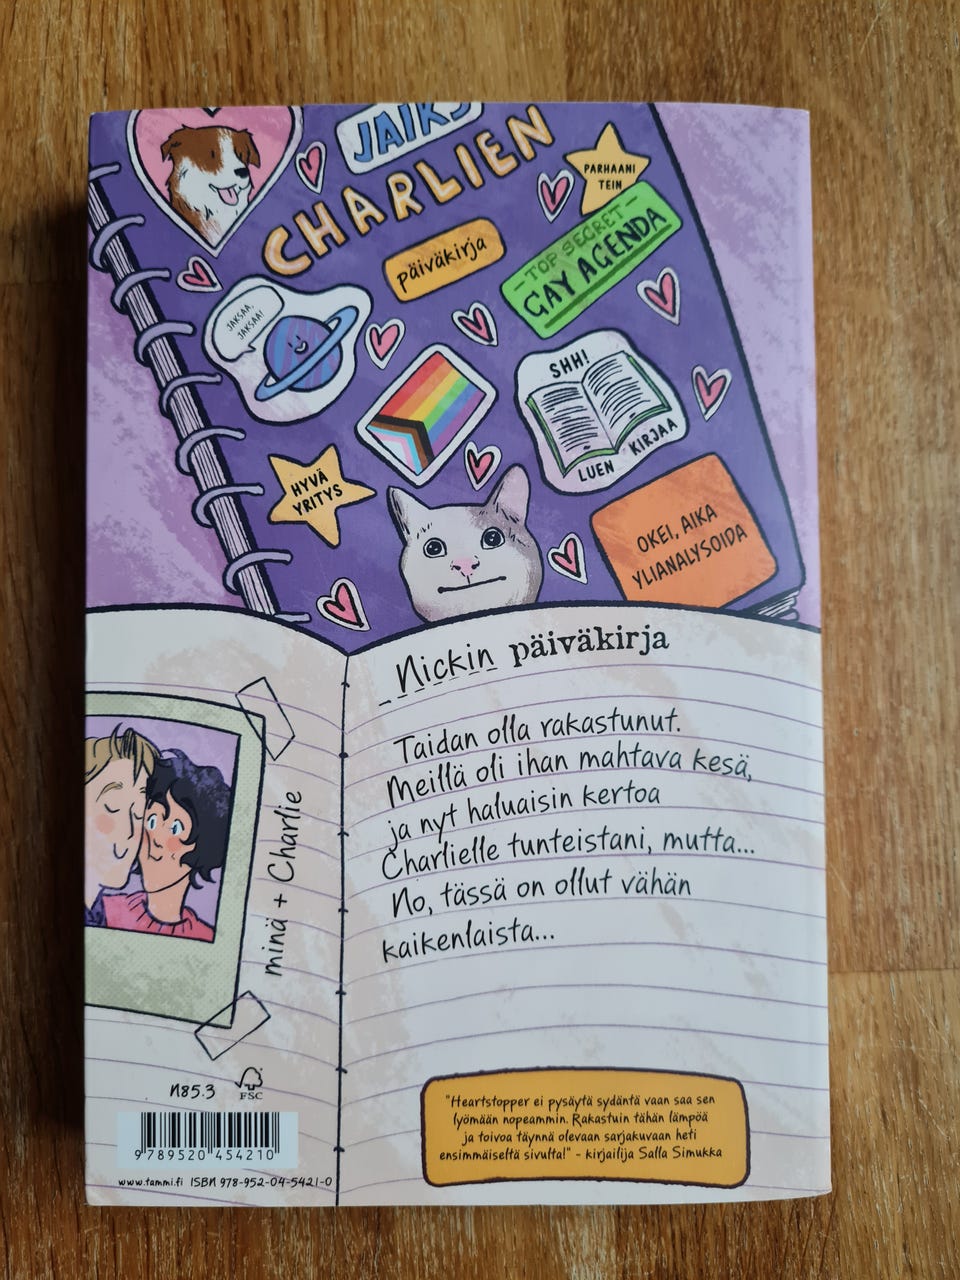 JAIKS
CHARLIEN
päiväkirja
PARHAANI
TEIN
-TOP SECRET-
GAY AGENDA
JAKSAA,
JAKSAA!
SHH!
LUEN KIRJAA
HYVÄ
YRITYS
OKEI, AIKA
YLIANALYSOIDA
Nickin päiväkirja
Taidan olla rakastunut.
Meillä oli ihan mahtava kesä,
ja nyt haluaisin kertoa
Charlielle tunteistani, mutta...
No, tässä on ollut vähän
kaikenlaista...
minä + Charlie
N85.3
FSC
9 789520 454210
www.tammi.fi ISBN 978-952-04-5421-0
"Heartstopper ei pysäytä sydäntä vaan saa sen
lyömään nopeammin. Rakastuin tähän lämpöä
ja toivoa täynnä olevaan sarjakuvaan heti
ensimmäiseltä sivulta!" - kirjailija Salla Simukka